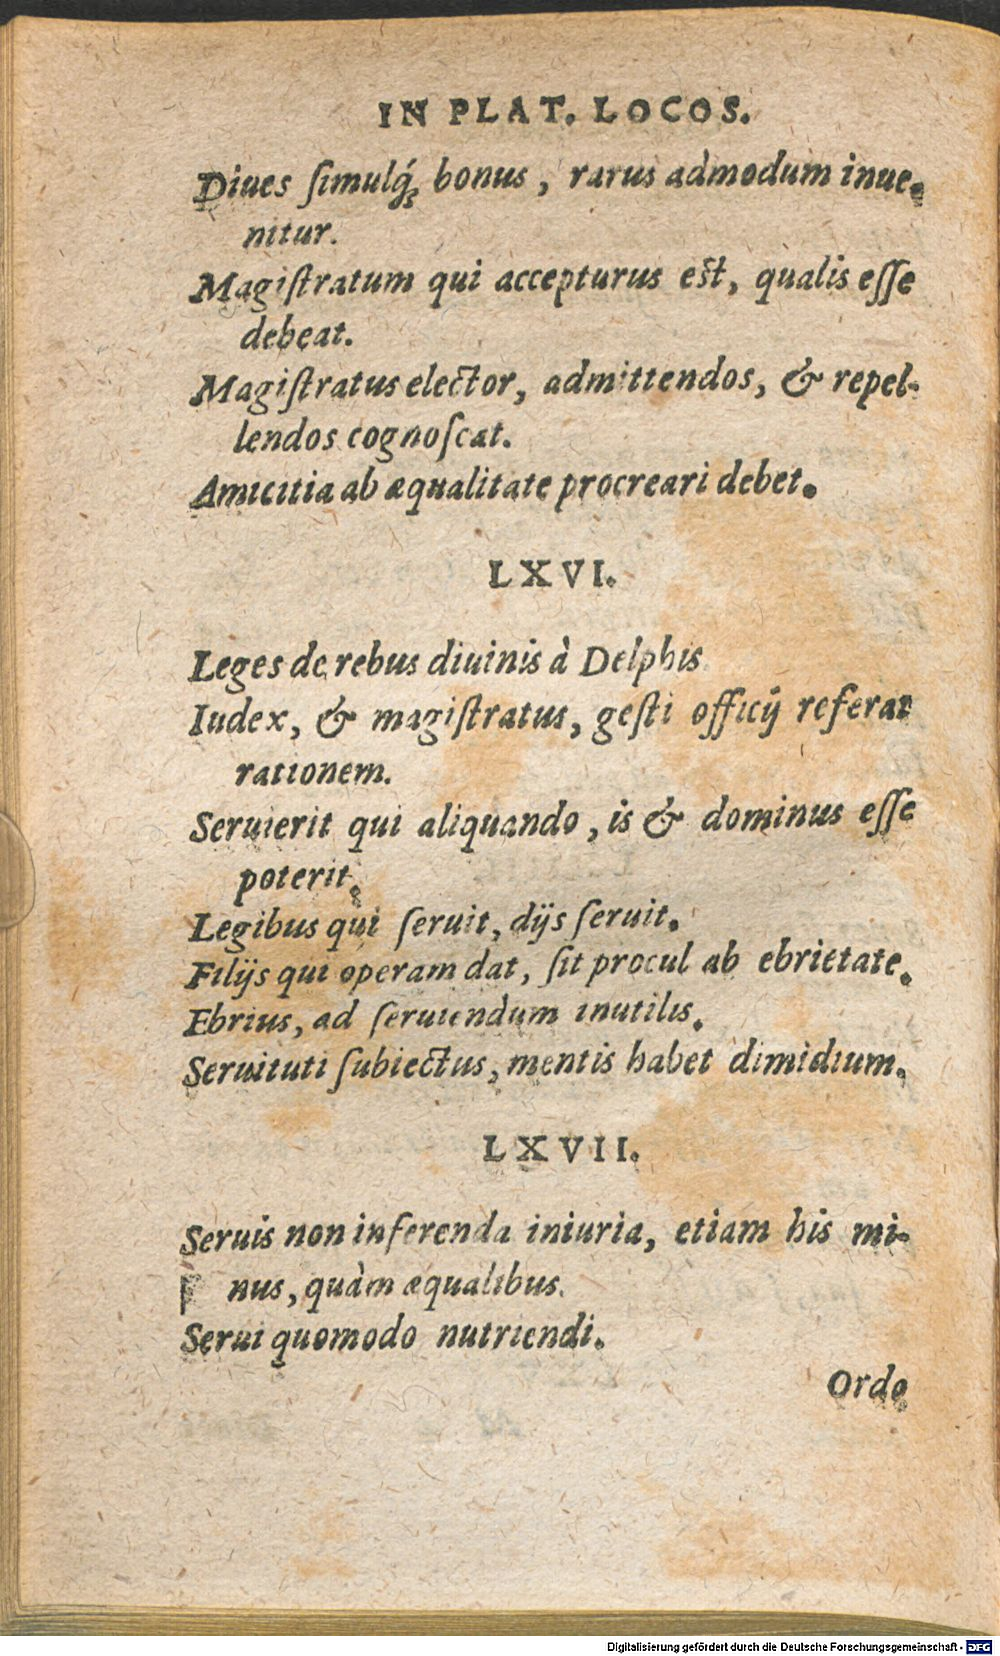 IN PLAT. LOCOS.
Diues ſimulq́; bonus, rarus admodum inue-
nitur.
Magiſtratum qui accepturus est, qualis eſſe
debeat.
Magiſtratus elector, admittendos, & repel-
lendos cognoſcat.
Amicitia ab æqualitate procreari debet.
LXVI.
Leges de rebus diuinis à Delphis
Iudex, & magiſtratus, geſti officij referat
rationem.
Seruierit qui aliquando, is & dominus eſſe
poterit.
Legibus qui ſeruit, dijs ſeruit.
Filijs qui operam dat, ſit procul ab ebrietate.
Ebrius, ad ſeruiendum inutilis.
Seruituti ſubiectus, mentis habet dimidium.
LXVII.
Seruis non inferenda iniuria, etiam his mi-
nus, quàm æqualibus.
Serui quomodo nutriendi.
Ordo
Digitalisierung gefördert durch die Deutsche Forschungsgemeinschaft - DFG